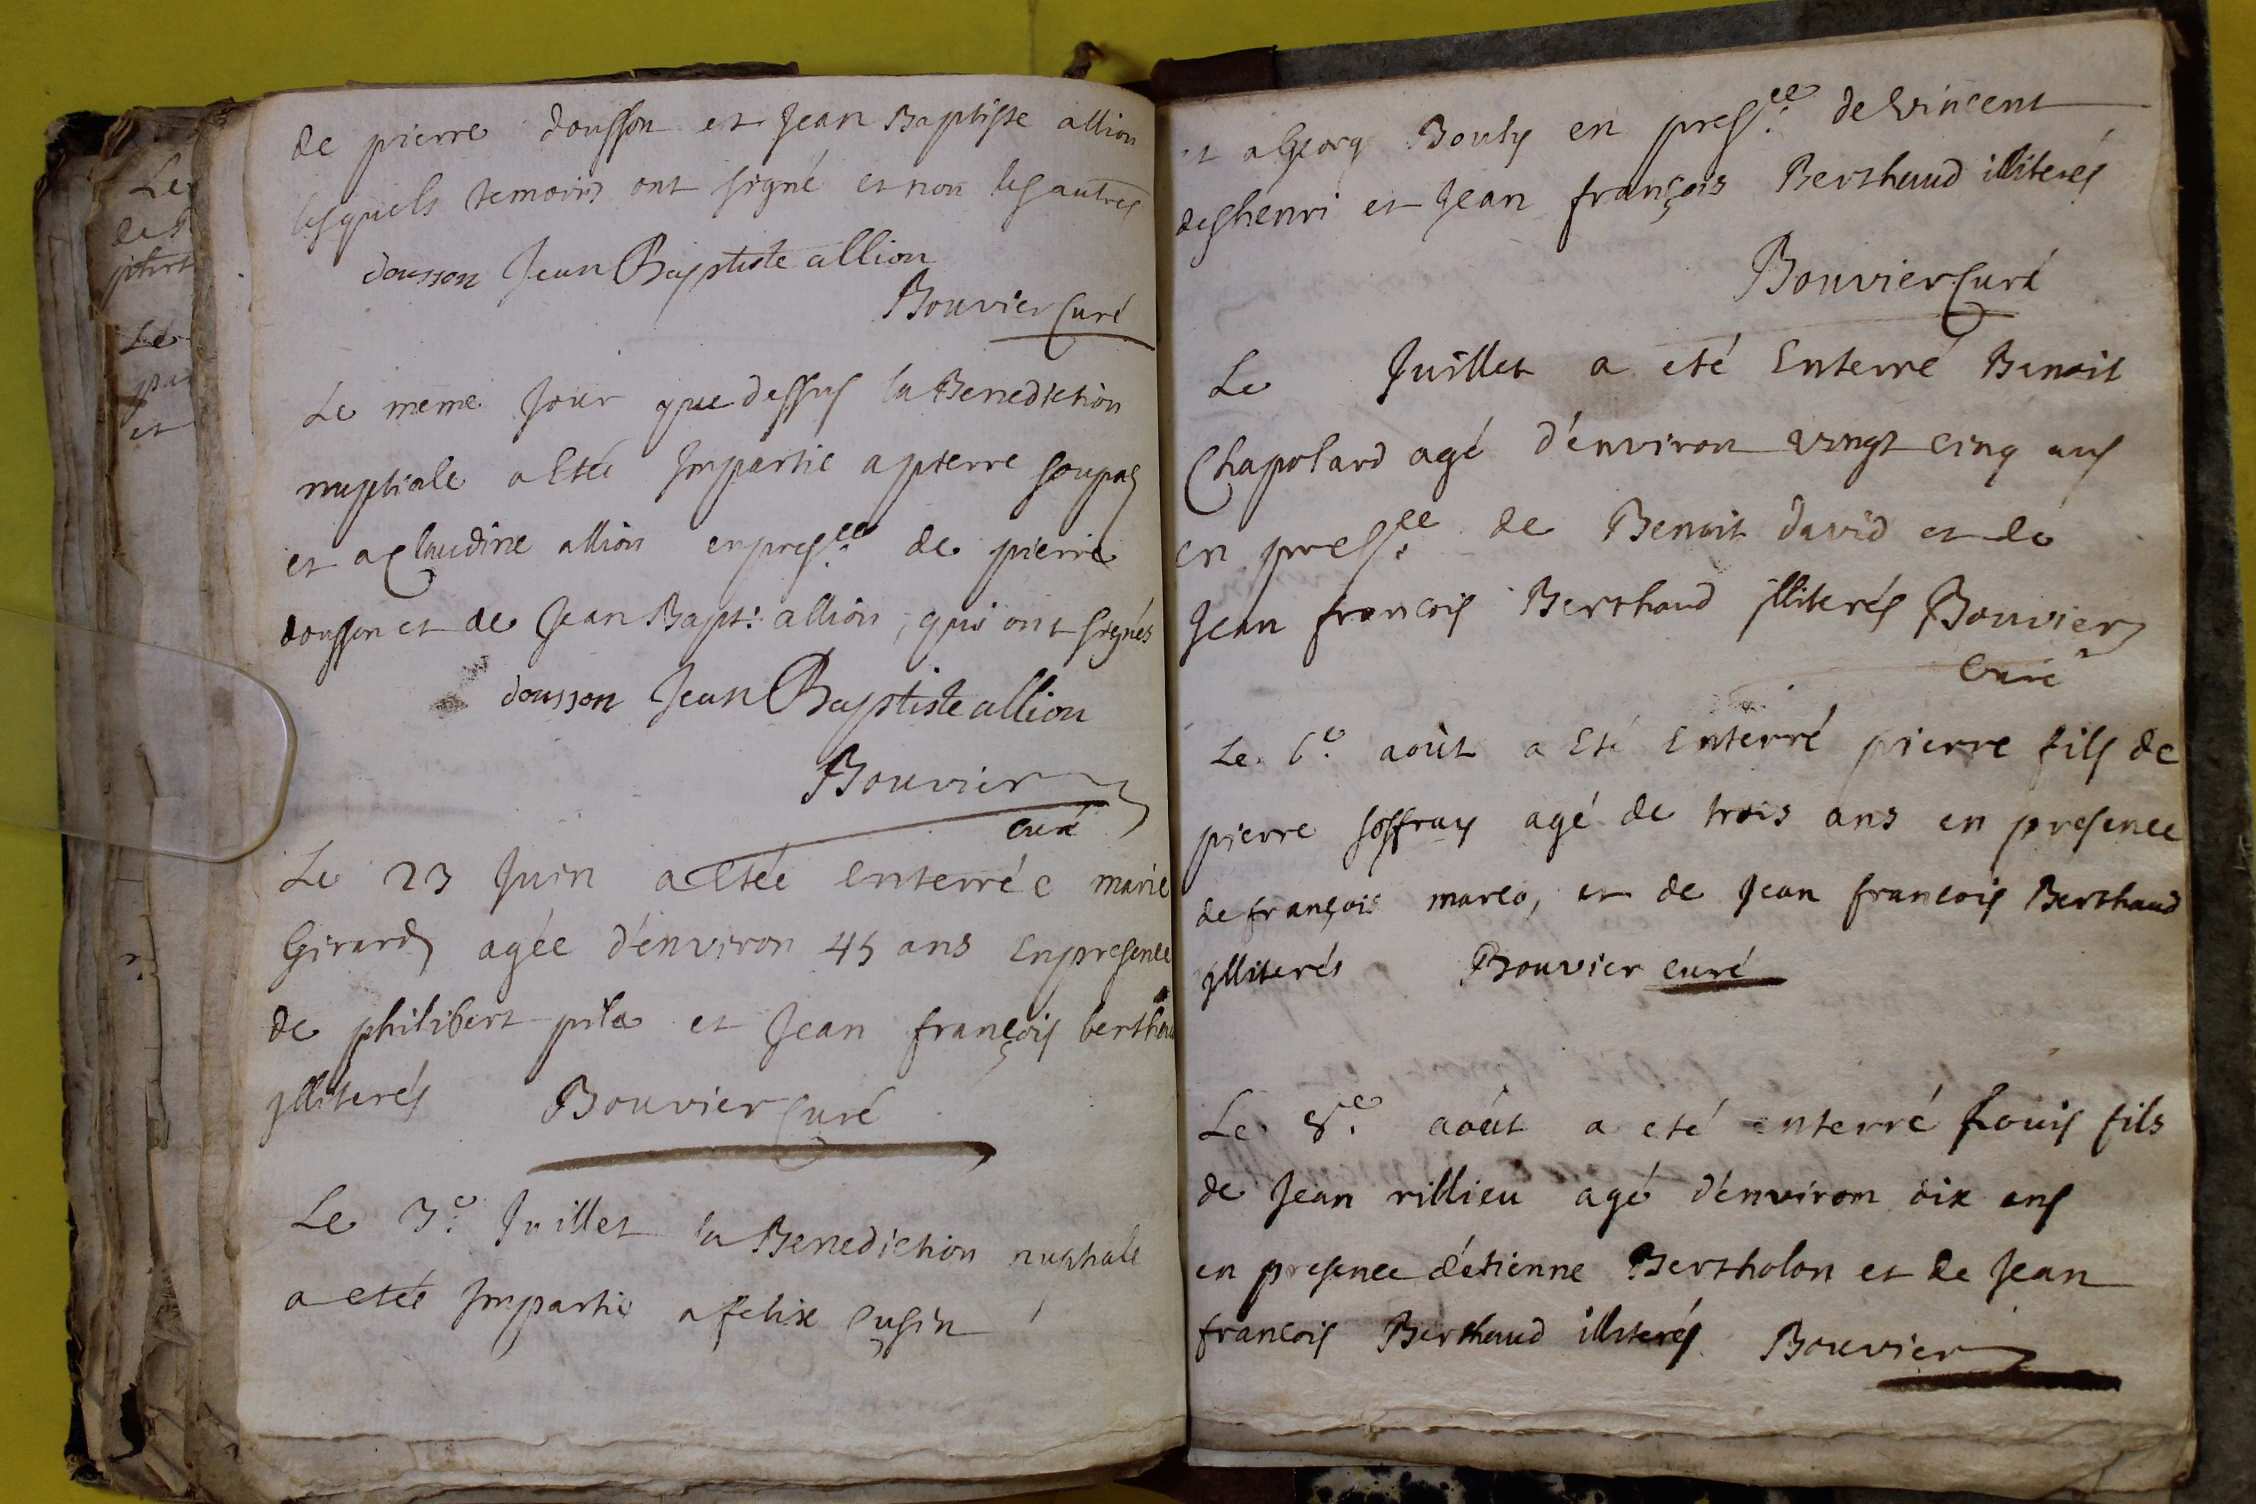 de pierre dousson et Jean Baptiste allion
lesquels temoins ont signé et non les autres
dousson Jean Baptiste allion
Bouvier Curé
Le meme Jour que dessus la Benediction
nuptiale a Etée Impartie a pierre
et a Claudine allion en pres.ce de pierre
dousson et de Jean Bapt: allion, qui ont signés
dousson Jean Baptiste allion
Bouvier
curé
Le 23 Juin a Etée enterrée marie
Girard agée d'environ 45 ans En presence
de philibert pila et Jean françois berthau
illiterés Bouvier Curé
Le 3.e Juillet la Benediction nuptiale
a etée Impartie a felix
et a Bouly en pres.ce de Vincent
deshenri et Jean françois Berthaud illiterés
Bouvier Curé
Le Juillet a eté Enterré Benoit
Chapolard agé d'environ vingt cinq ans
en pres.ce de Benoit david et de
Jean francois Berthaud illiterés Bouvier
Curé
Le 6.e août a Eté Enterré pierre fils de
pierre joffray agé de trois ans en presence
de françois marco, et de Jean francois Berthaud
illiterés Bouvier curé
Le 8.e août a eté enterré Louis fils
de Jean rillieu agé d'environ dix ans
en presence d'étienne Bertholon et de Jean
francois Berthaud illiterés Bouvier